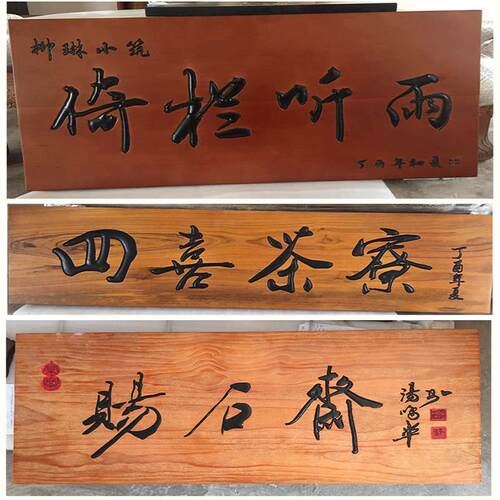 柳琳小筑
倚栏听雨
丁酉年初夏
四喜茶寮
丁酉年夏
賜石齋
湯鸣華